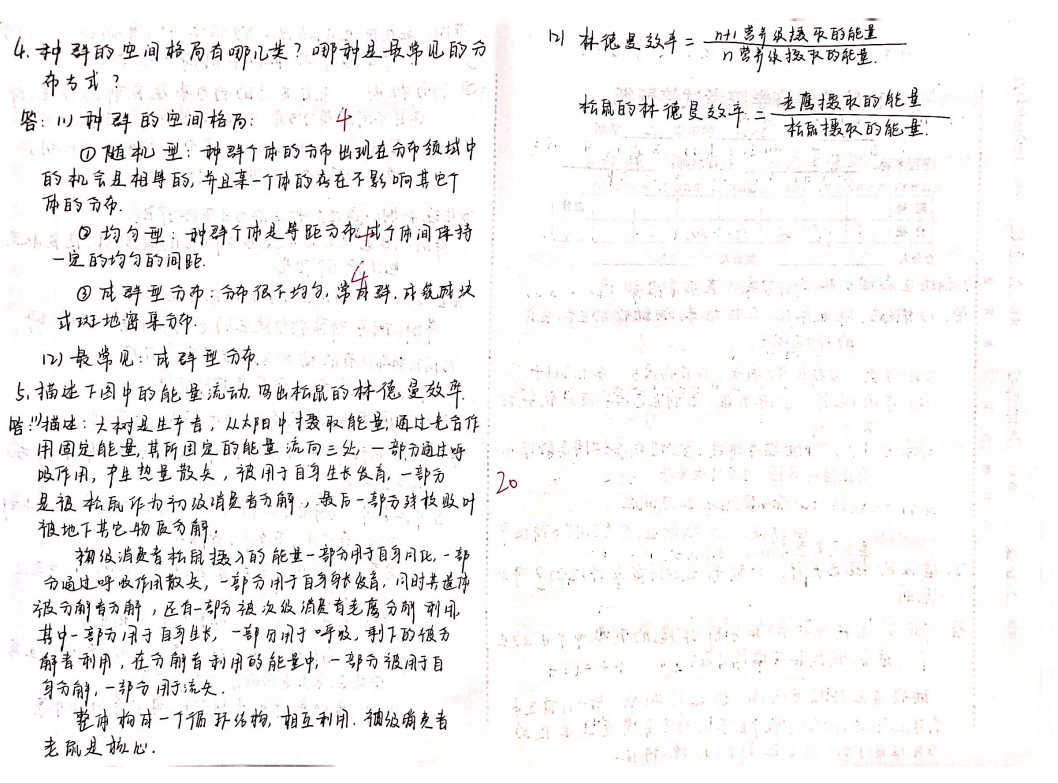 4. 种群的空间格局有哪几类？哪种是最常见的分
布方式？
答：(1) 种群的空间格局：
4
① 随机型：种群个体的分布出现在分布领域中
的机会是相等的，并且某一个体的存在不影响其它个
体的分布.
② 均匀型：种群个体是等距分布，或个体间保持
4
一定的均匀的间距.
4
③ 成群型分布：分布很不均匀，常成群、成簇成块
或斑地密集分布.
(2) 最常见：成群型分布.
5. 描述下图中的能量流动，写出松鼠的林德曼效率.
答：(1)描述：大树是生产者，从太阳中摄取能量，通过光合作
用固定能量，其所固定的能量流向三处，一部分通过呼
吸作用，产生热量散失，被用于自身生长发育，一部分
是被松鼠作为初级消费者分解，最后一部分残枝败叶
被地下其它物质分解.
初级消费者松鼠摄入的能量一部分用于自身同化，一部
分通过呼吸作用散失，一部分用于自身生长发育，同时其遗体
被分解者分解，还有一部分被次级消费者老鹰分解利用，
其中一部分用于自身生长，一部分用于呼吸，剩下的被分
解者利用，在分解者利用的能量中，一部分被用于自
身分解，一部分用于流失.
整体构成一个循环结构，相互利用. 初级消费者
老鼠是核心.
20
(2) 林德曼效率 = n+1营养级摄取的能量 / n营养级摄取的能量.
松鼠的林德曼效率 = 老鹰摄取的能量 / 松鼠摄取的能量.